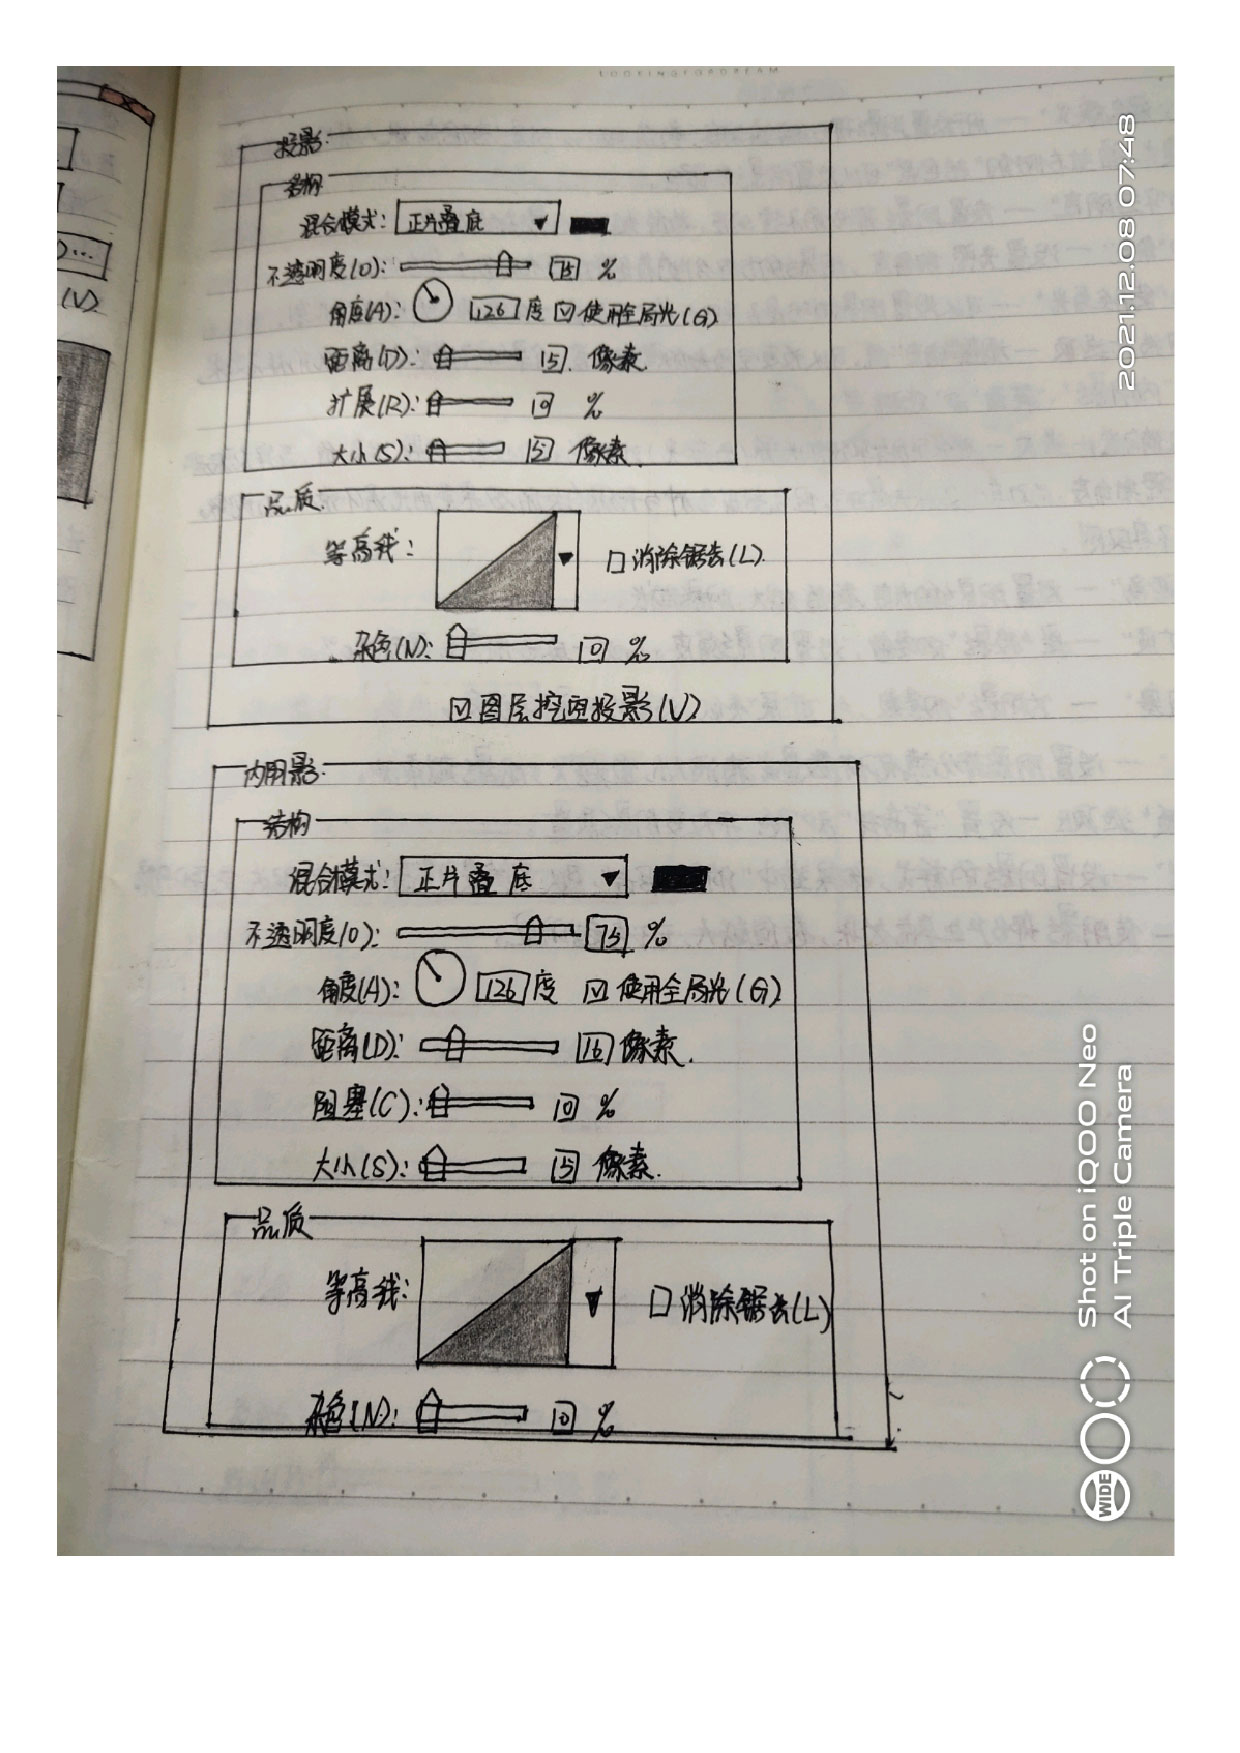 LOOKINGFORDREAM
投影
结构
混合模式: 正片叠底
不透明度(O): 75 %
角度(A): 126 度 使用全局光(G)
距离(D): 5 像素
扩展(R): 0 %
大小(S): 5 像素
品质
等高线:
消除锯齿(L)
杂色(N): 0 %
图层挖空投影(V)
内阴影
结构
混合模式: 正片叠底
不透明度(O): 75 %
角度(A): 126 度 使用全局光(G)
距离(D): 16 像素.
阻塞(C): 0 %
大小(S): 5 像素.
品质
等高线:
消除锯齿(L)
杂色(N): 0 %
(V)
2021.12.08 07:48
Shot on iQOO Neo
AI Triple Camera
WIDE